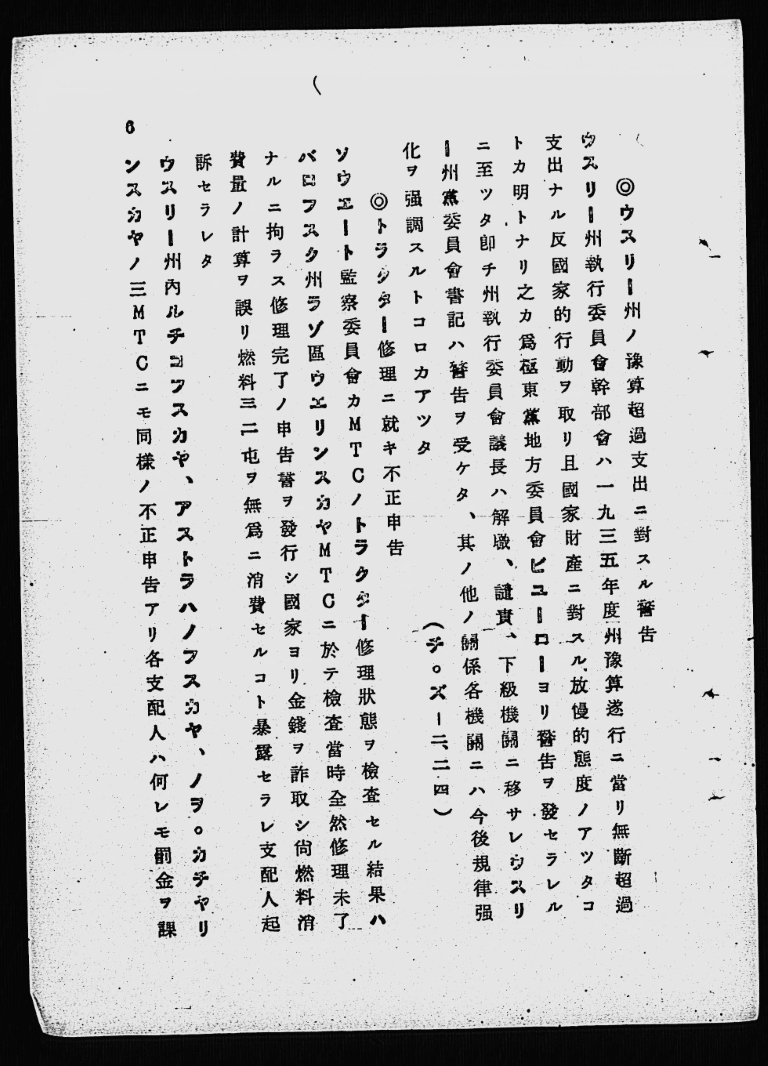 ◎ウスリー州ノ豫算超過支出ニ對スル警告
ウスリー州執行委員會幹部會ハ一九三五年度州豫算遂行ニ當リ無斷超過
支出ナル反國家的行動ヲ取リ且國家財產ニ對スル放慢的態度ノアツタコ
トカ明トナリ之カ爲極東黨地方委員會ビユーローヨリ警告ヲ發セラレル
ニ至ツタ卽チ州執行委員會議長ハ解職、譴責、下級機關ニ移サレウスリ
ー州黨委員會書記ハ警告ヲ受ケタ、其ノ他ノ關係各機關ニハ今後規律强
化ヲ强調スルトコロカアツタ
(チ。ズー二、二四)
◎トラクター修理ニ就キ不正申告
ソウエート監察委員會カMTCノトラクター修理狀態ヲ檢査セル結果ハ
バロフスク州ラゾ區ウエリンスカヤMTCニ於テ檢査當時全然修理未了
ナルニ拘ラス修理完了ノ申告書ヲ發行シ國家ヨリ金錢ヲ詐取シ尙燃料消
費量ノ計算ヲ誤リ燃料三二屯ヲ無爲ニ消費セルコト暴露セラレ支配人起
訴セラレタ
ウスリー州內ルチコフスカヤ、アストラハノフスカヤ、ノヲ。カチヤリ
ンスカヤノ三MTCニモ同樣ノ不正申告アリ各支配人ハ何レモ罰金ヲ課
6